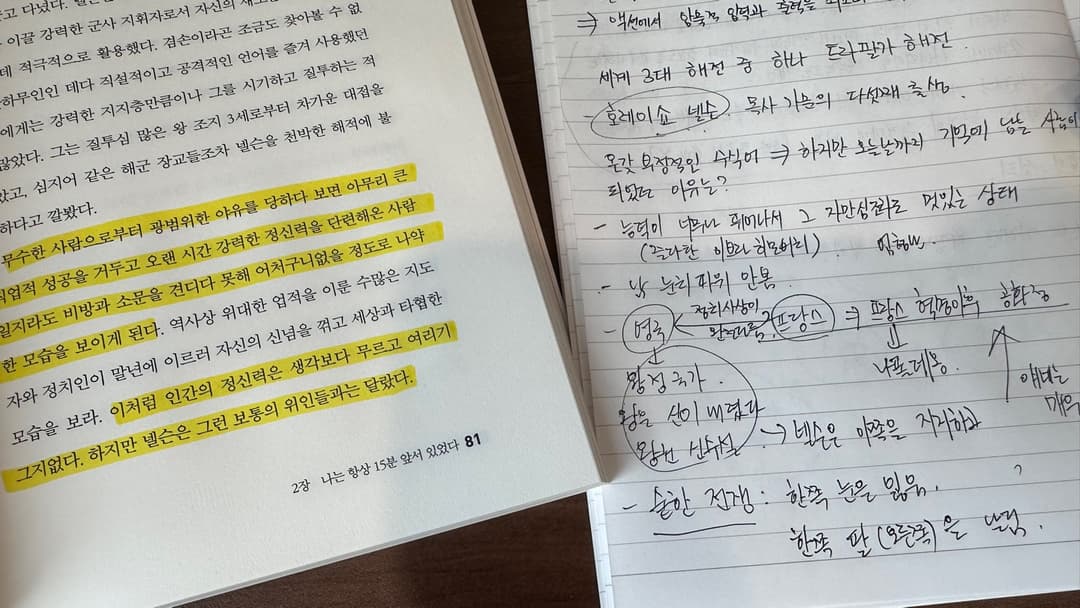 이끌 강력한 군사 지휘자로서 자신의
데 적극적으로 활용했다. 겸손이라곤 조금도 찾아볼 수 없
하무인인 데다 직설적이고 공격적인 언어를 즐겨 사용했던
에게는 강력한 지지층만큼이나 그를 시기하고 질투하는 적
많았다. 그는 질투심 많은 왕 조지 3세로부터 차가운 대접을
았고, 심지어 같은 해군 장교들조차 넬슨을 천박한 해적에 불
하다고 깔봤다.
무수한 사람으로부터 광범위한 야유를 당하다 보면 아무리 큰
직업적 성공을 거두고 오랜 시간 강력한 정신력을 단련해온 사람
일지라도 비방과 소문을 견디다 못해 어처구니없을 정도로 나약
한 모습을 보이게 된다. 역사상 위대한 업적을 이룬 수많은 지도
자와 정치인이 말년에 이르러 자신의 신념을 꺾고 세상과 타협한
모습을 보라. 이처럼 인간의 정신력은 생각보다 무르고 여리기
그지없다. 하지만 넬슨은 그런 보통의 위인들과는 달랐다.
2장 나는 항상 15분 앞서 있었다 81
⇒ 액션에서 압력과 출력을
세계 3대 해전 중 하나 트라팔가 해전.
- 호레이쇼 넬슨. 목사 가문의 다섯째 출생.
온갖 부정적인 수식어 ⇒ 하지만 오늘날까지 기억에 남는
되었던 이유는?
- 능력이 너무나 뛰어나서 그 자만심조차도 멋있는 상태
- 남 눈치 따위 안봄.
- 영국 정치사상이 프랑스 ⇒ 프랑스 혁명이후 공화정
왕정 국가. 나폴레옹.
왕은 신이 내렸다 얘네는
왕권 신수설 → 넬슨은 이쪽을 지지하고 매우
- 숱한 전쟁 : 한쪽 눈을 잃음.
한쪽 팔(오른쪽)을 날림.